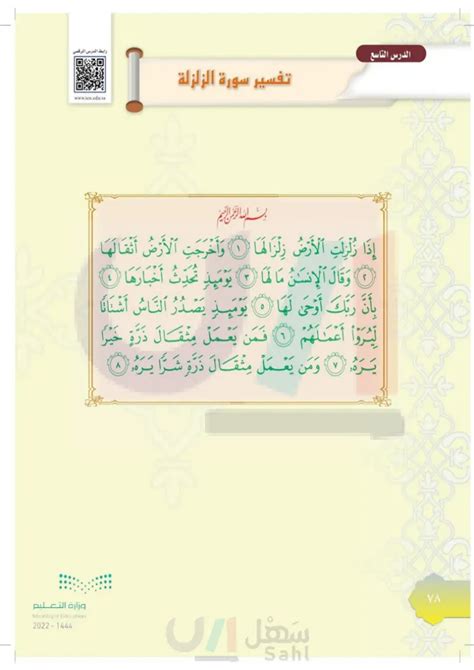 الدرس التاسع
رابط الدرس الرقمي
www.ien.edu.sa
تفسير سورة الزلزلة
بِسْمِ اللَّهِ الرَّحْمَٰنِ الرَّحِيمِ
إِذَا زُلْزِلَتِ ٱلْأَرْضُ زِلْزَالَهَا ١ وَأَخْرَجَتِ ٱلْأَرْضُ أَثْقَالَهَا
٢ وَقَالَ ٱلْإِنسَٰنُ مَا لَهَا ٣ يَوْمَئِذٍ تُحَدِّثُ أَخْبَارَهَا ٤
بِأَنَّ رَبَّكَ أَوْحَىٰ لَهَا ٥ يَوْمَئِذٍ يَصْدُرُ ٱلنَّاسُ أَشْتَاتًا
لِّيُرَوْا۟ أَعْمَٰلَهُمْ ٦ فَمَن يَعْمَلْ مِثْقَالَ ذَرَّةٍ خَيْرًا
يَرَهُۥ ٧ وَمَن يَعْمَلْ مِثْقَالَ ذَرَّةٍ شَرًّا يَرَهُۥ ٨
٧٨
وزارة التعليم
Ministry of Education
2022 - 1444
سَهْل
Sahl